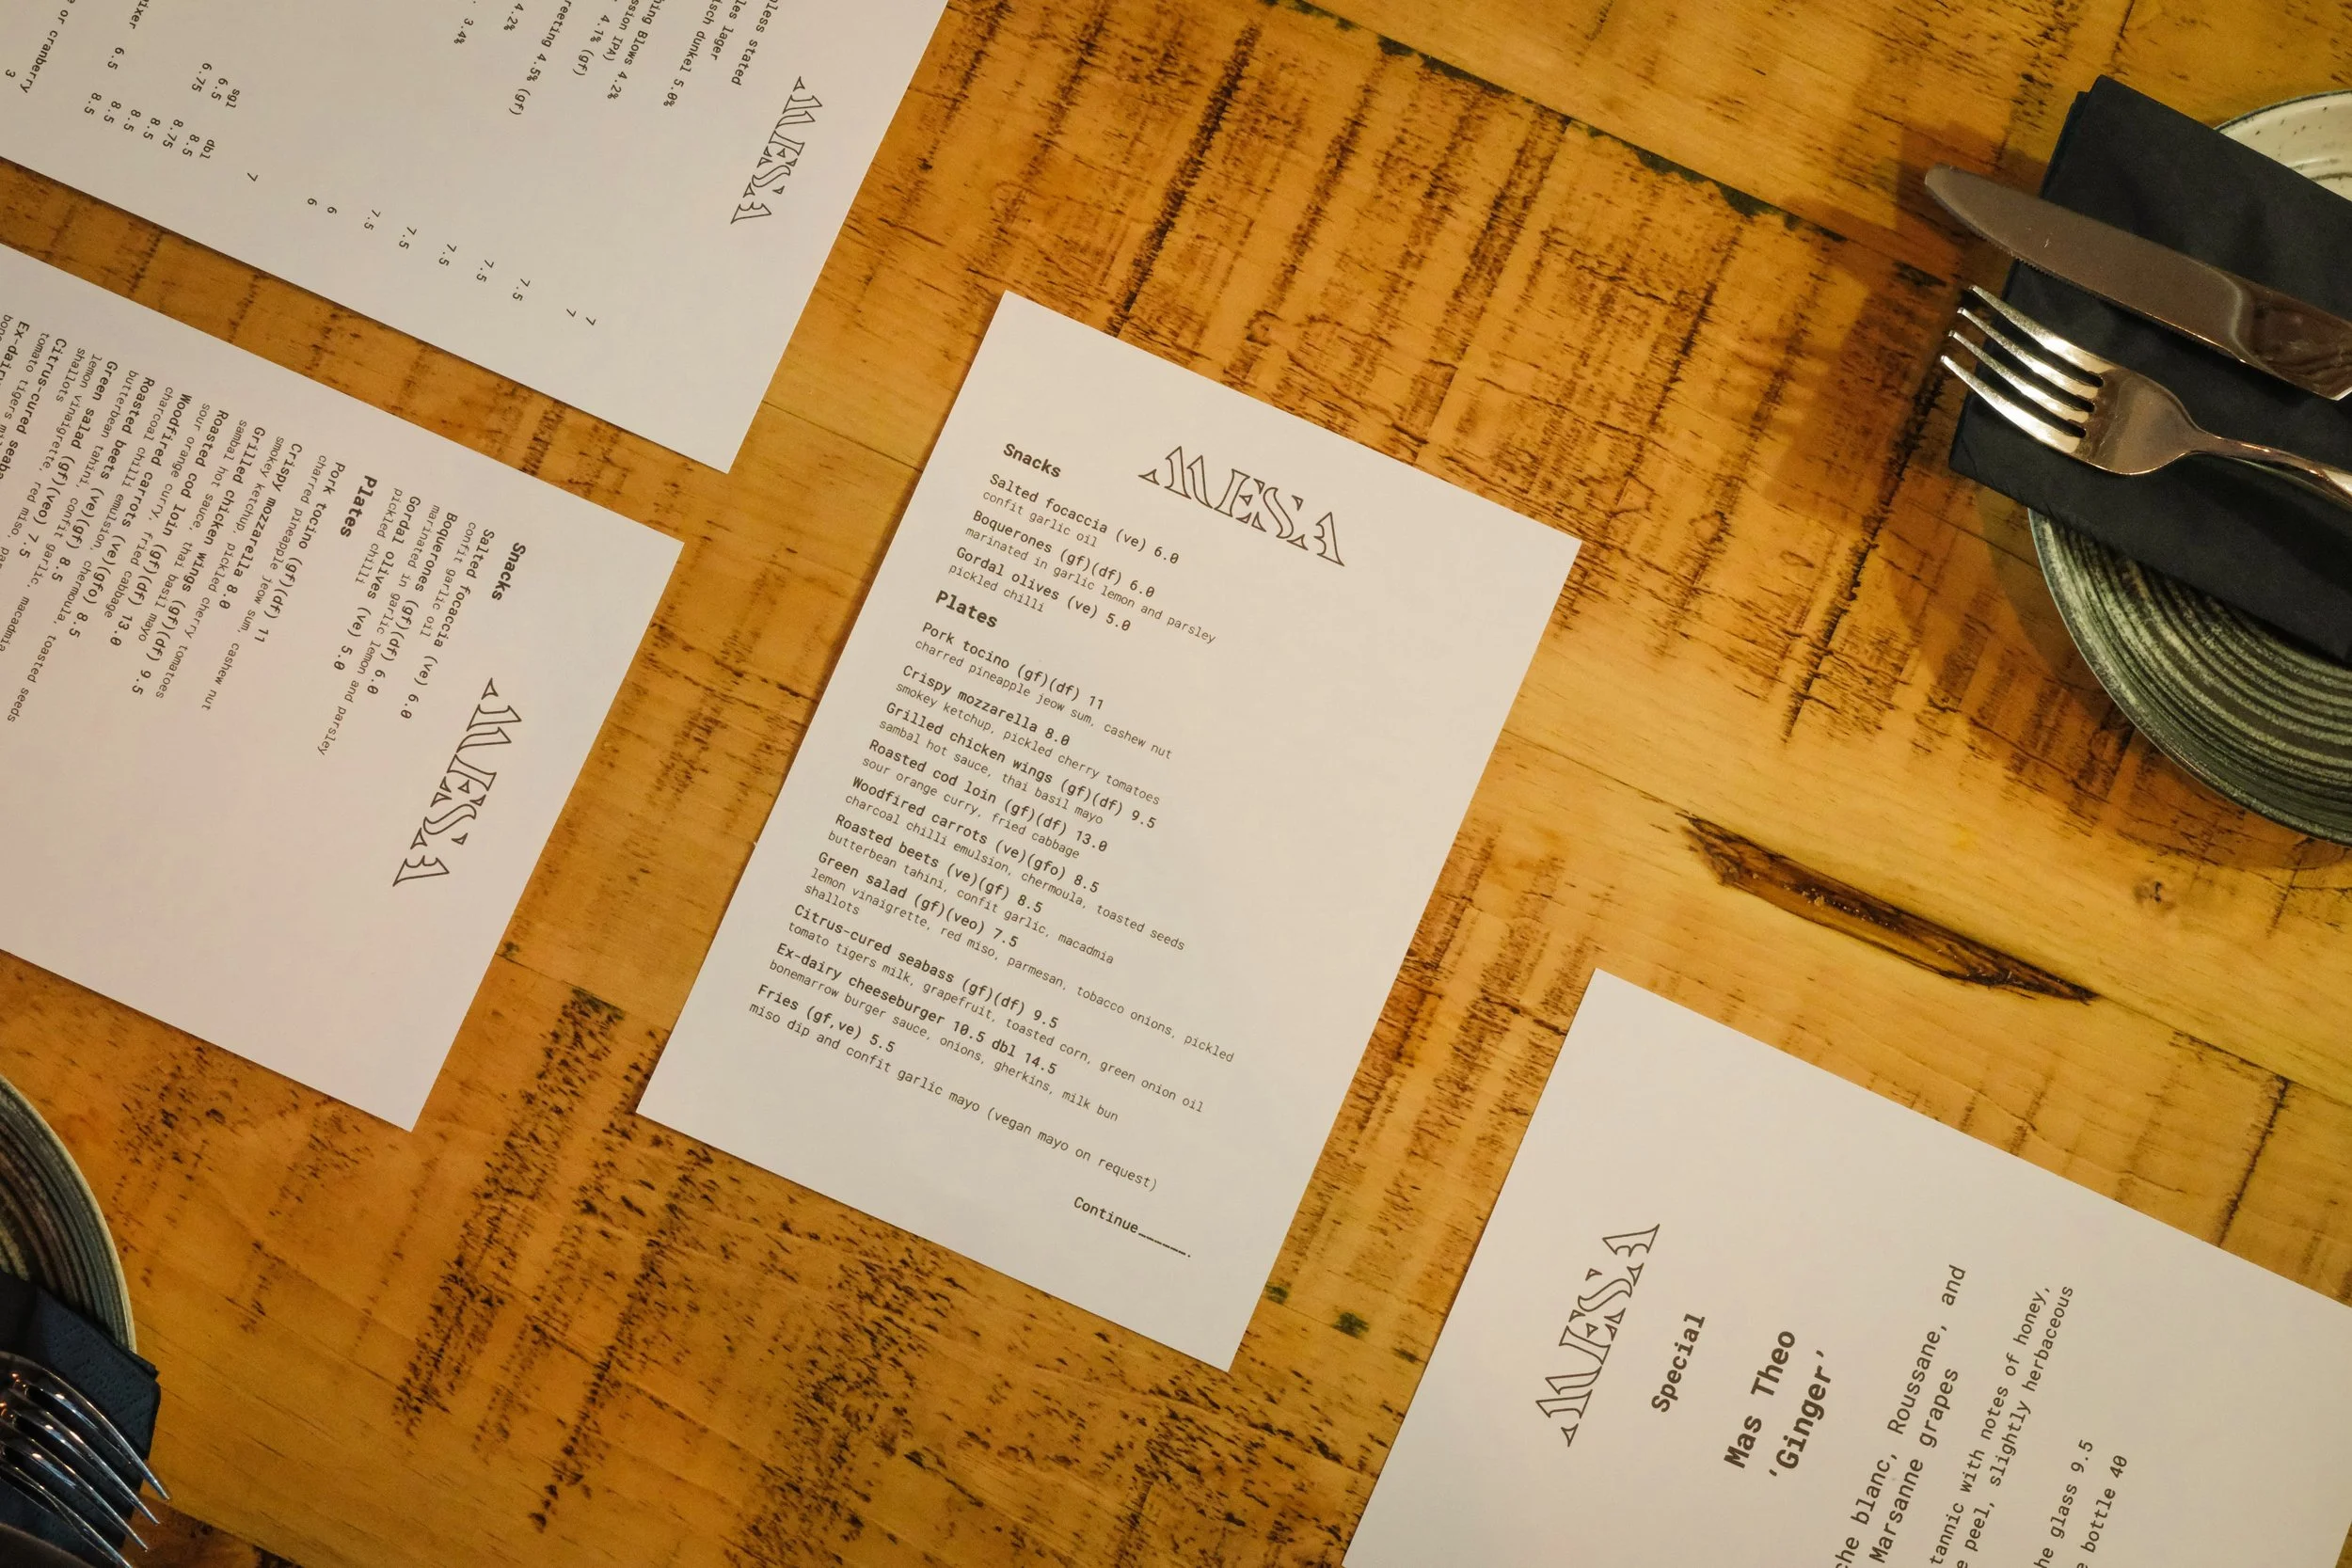 less stated
les lager
isch dunkel 5.0%
ing Blows 4.2%
ssion IPA)
4.1% (gf)
reeting 4.5% (gf)
4.2%
3.4%
MESA
7
7
7.5
7.5
7.5
7.5
7.5
6
6
7
sgl dbl
6.5 8.5
6.75 8.75
8.5
8.5
8.5
8.5
ixer 6.5
or cranberry
3
MESA
Snacks
Salted focaccia (ve) 6.0
confit garlic oil
Boquerones (gf)(df) 6.0
marinated in garlic lemon and parsley
Gordal olives (ve) 5.0
pickled chilli
Plates
Pork tocino (gf)(df) 11
charred pineapple jeow sum, cashew nut
Crispy mozzarella 8.0
smokey ketchup, pickled cherry tomatoes
Grilled chicken wings (gf)(df) 9.5
sambal hot sauce, thai basil mayo
Roasted cod loin (gf)(df) 13.0
sour orange curry, fried cabbage
Woodfired carrots (ve)(gfo) 8.5
charcoal chilli emulsion, chermoula, toasted seeds
Roasted beets (ve)(gf) 8.5
butterbean tahini, confit garlic, macadmia
Green salad (gf)(veo) 7.5
lemon vinaigrette, red miso, pa
shallots
Citrus-cured seaba
tomato tigers mil
Ex-dairy
bon
MESA
Snacks
Salted focaccia (ve) 6.0
confit garlic oil
Boquerones (gf)(df) 6.0
marinated in garlic lemon and parsley
Gordal olives (ve) 5.0
pickled chilli
Plates
Pork tocino (gf)(df) 11
charred pineapple jeow sum, cashew nut
Crispy mozzarella 8.0
smokey ketchup, pickled cherry tomatoes
Grilled chicken wings (gf)(df) 9.5
sambal hot sauce, thai basil mayo
Roasted cod loin (gf)(df) 13.0
sour orange curry, fried cabbage
Woodfired carrots (ve)(gfo) 8.5
charcoal chilli emulsion, chermoula, toasted seeds
Roasted beets (ve)(gf) 8.5
butterbean tahini, confit garlic, macadmia
Green salad (gf)(veo) 7.5
lemon vinaigrette, red miso, parmesan, tobacco onions, pickled
shallots
Citrus-cured seabass (gf)(df) 9.5
tomato tigers milk, grapefruit, toasted corn, green onion oil
Ex-dairy cheeseburger 10.5 dbl 14.5
bonemarrow burger sauce, onions, gherkins, milk bun
Fries (gf,ve) 5.5
miso dip and confit garlic mayo (vegan mayo on request)
Continue______.
MESA
Special
Mas Theo
'Ginger'
che blanc, Roussane, and
Marsanne grapes
tannic with notes of honey,
e peel, slightly herbaceous
he glass 9.5
e bottle 40